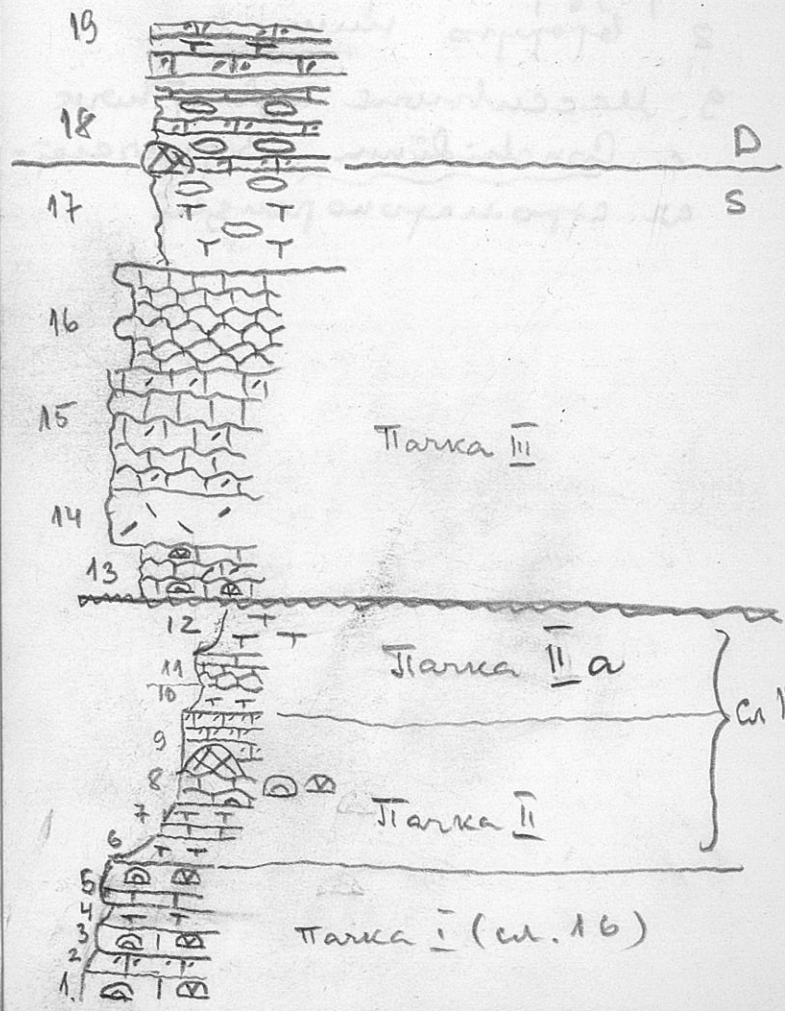 19
18
D
17
S
16
15
Пачка III
14
13
12
11
Пачка II а
10
сл 1
9
8
7
Пачка II
6
5
4
3
Пачка I (сл. 1б)
2
1.